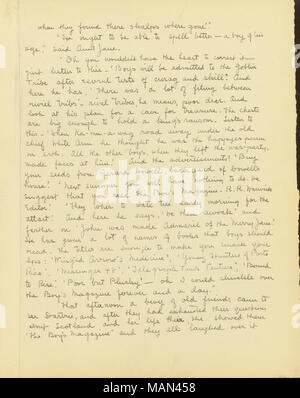 when they found there shadows where gone."
"He ought to be able to spell better - a boy of his
age," said Aunt Jane.
"Oh you wouldn't have the heart to correct it -
just listen to this - 'Boys will be admitted to the Goblin
Tribe after several tests of currag and skill'. And
here he has, 'There was a lot of filing between
rivel tribs' - rival tribes, he means, poor dear. And
look at his plan for a cave for treasure. The chests
are big enough to hold a king's ransom. Listen to
this - 'When Ra-mu-a was road away, under the old
chief White Arm he thought he was the happyest person
on erth. All the other boys, when they left the war-party,
made faces at him.' And the advertisements! 'Buy
your seeds from
house.' 'Next summer you will have nothing to do. We
suggest that you sell the Boy's Magazine. R. R.
Editor.' 'Plan when to
attact.' And here he says, 'be not awards,' and
farther on 'John was made Admarel of the Merry Jane.'
He has given a lot of names of books that boys should
read. The titles are enough to make you smack your
lips: "Winged Arrow's Medicine", "Young Hunters of Porto
Rico", "Messenger 48", "Telegraph Tom's Venture", "Bound
to Rise", "Poor but Plucky" - oh I could chuckle over
the Boy's Magazine forever and a day."
That afternoon a bevy of old friends came to
see and after they had exhausted their questions
about Scotland and her life there she showed them
"His Boy's Magazine" and they all laughed over it
alamy
Image ID: MAN458
www.alamy.com